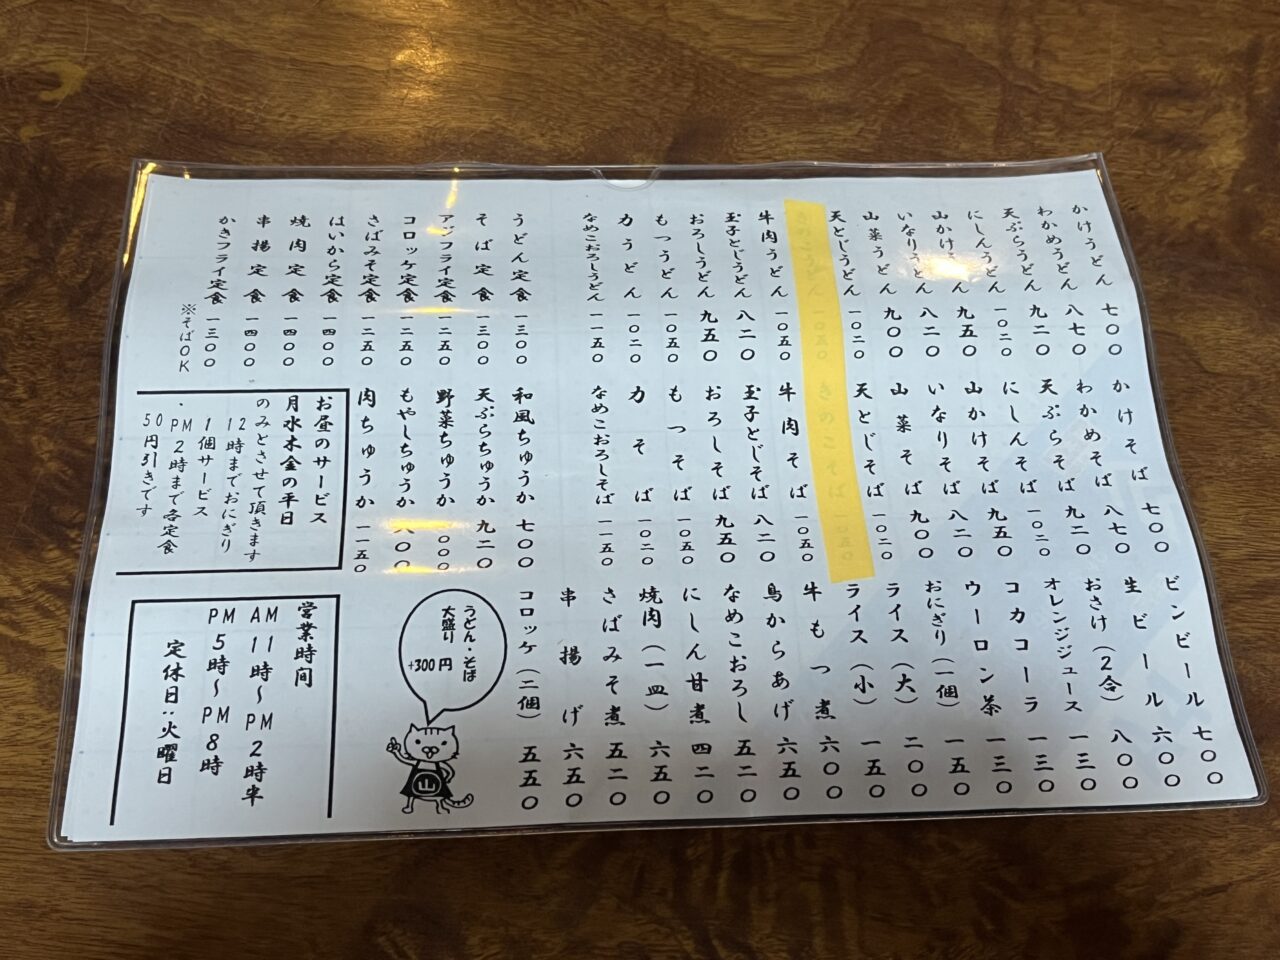 かけうどん 七〇〇
わかめうどん 八七〇
天ぷらうどん 九二〇
にしんうどん 一〇二〇
山かけうどん 九五〇
いなりうどん 八二〇
山菜うどん 九〇〇
天とじうどん 一〇二〇
きのこうどん 一〇五〇
牛肉うどん 一〇五〇
玉子とじうどん 八二〇
おろしうどん 九五〇
もつうどん 一〇五〇
力うどん 一〇二〇
なめこおろしうどん 一一五〇
うどん定食 一三〇〇
そば定食 一三〇〇
アジフライ定食 一二五〇
コロッケ定食 一二五〇
さばみそ定食 一二五〇
はいから定食 一四〇〇
焼肉定食 一四〇〇
串揚定食 一四〇〇
かきフライ定食 一三〇〇
※そばOK
かけそば 七〇〇
わかめそば 八七〇
天ぷらそば 九二〇
にしんそば 一〇二〇
山かけそば 九五〇
いなりそば 八二〇
山菜そば 九〇〇
天とじそば 一〇二〇
きのこそば 一〇五〇
牛肉そば 一〇五〇
玉子とじそば 八二〇
おろしそば 九五〇
もつそば 一〇五〇
力そば 一〇二〇
なめこおろしそば 一一五〇
和風ちゅうか 七〇〇
天ぷらちゅうか 九二〇
野菜ちゅうか 一〇〇〇
もやしちゅうか 八〇〇
肉ちゅうか 一一五〇
お昼のサービス
月水木金の平日
のみとさせて頂きます
12時までおにぎり
1個サービス
・PM2時まで各定食
50円引きです
ビンビール 七〇〇
生ビール 六〇〇
おさけ(2合) 八〇〇
オレンジジュース 一三〇
コカコーラ 一三〇
ウーロン茶 一三〇
おにぎり(一個) 一五〇
ライス(大) 二〇〇
ライス(小) 一五〇
牛もつ煮 六〇〇
鳥からあげ 六五〇
なめこおろし 五二〇
にしん甘煮 四二〇
焼肉(一皿) 六五〇
さばみそ煮 五二〇
串揚げ 六五〇
コロッケ(二個) 五五〇
うどん・そば
大盛り
+300円
山
営業時間
AM11時〜PM2時半
PM5時〜PM8時
定休日:火曜日